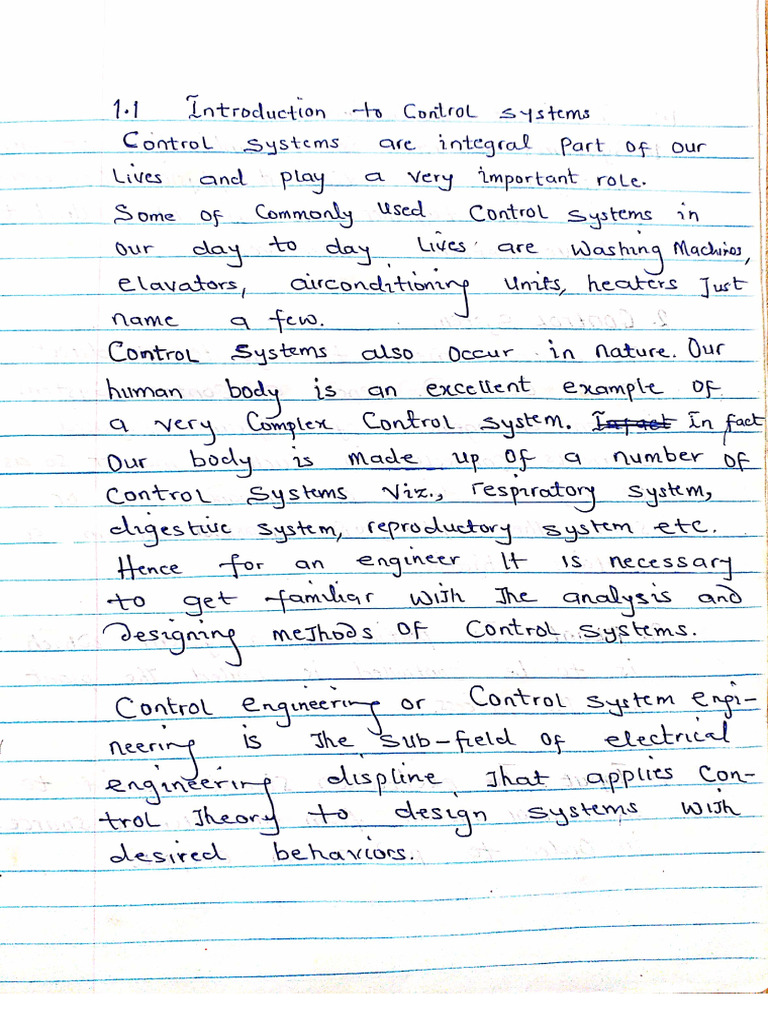 1.1 Introduction to Control systems
Control systems are integral part of our
lives and play a very important role.
Some of Commonly used Control systems in
our day to day lives are washing Machines,
elavators, airconditioning units, heaters Just
name a few.
Control systems also occur in nature. Our
human body is an excellent example of
a very Complex Control system. Infact In fact
Our body is made up of a number of
Control systems viz., respiratory system,
digestive system, reproductory system etc.
Hence for an engineer It is necessary
to get familiar with the analysis and
designing methods of Control systems.
Control engineering or Control system engi-
neering is the sub-field of electrical
engineering displine that applies Con-
trol theory to design systems with
desired behaviors.